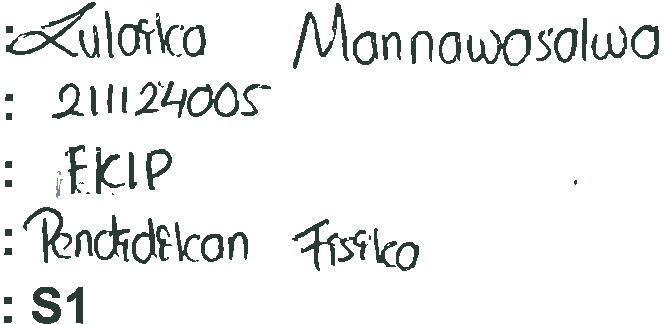 : Zulaika Mannawasalwa
: 211124005
: FKIP
: Pendidikan Fisika
: S1